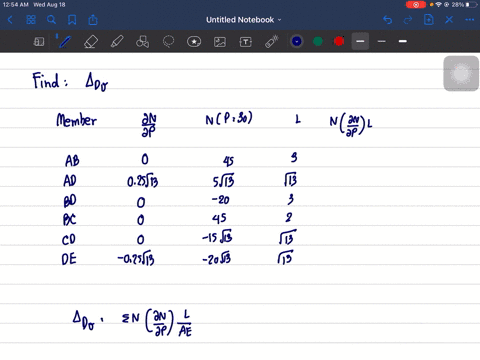 12:54 AM Wed Aug 18
28%
Untitled Notebook
Find: Δ_Dv
Member ∂N/∂P N(P=30) L N(∂N/∂P)L
AB 0 45 3
AD 0.25√13 5√13 √13
BD 0 -20 3
BC 0 45 2
CD 0 -15√13 √13
DE -0.25√13 -20√13 √13
Δ_Dv = ΣN(∂N/∂P) L/AE